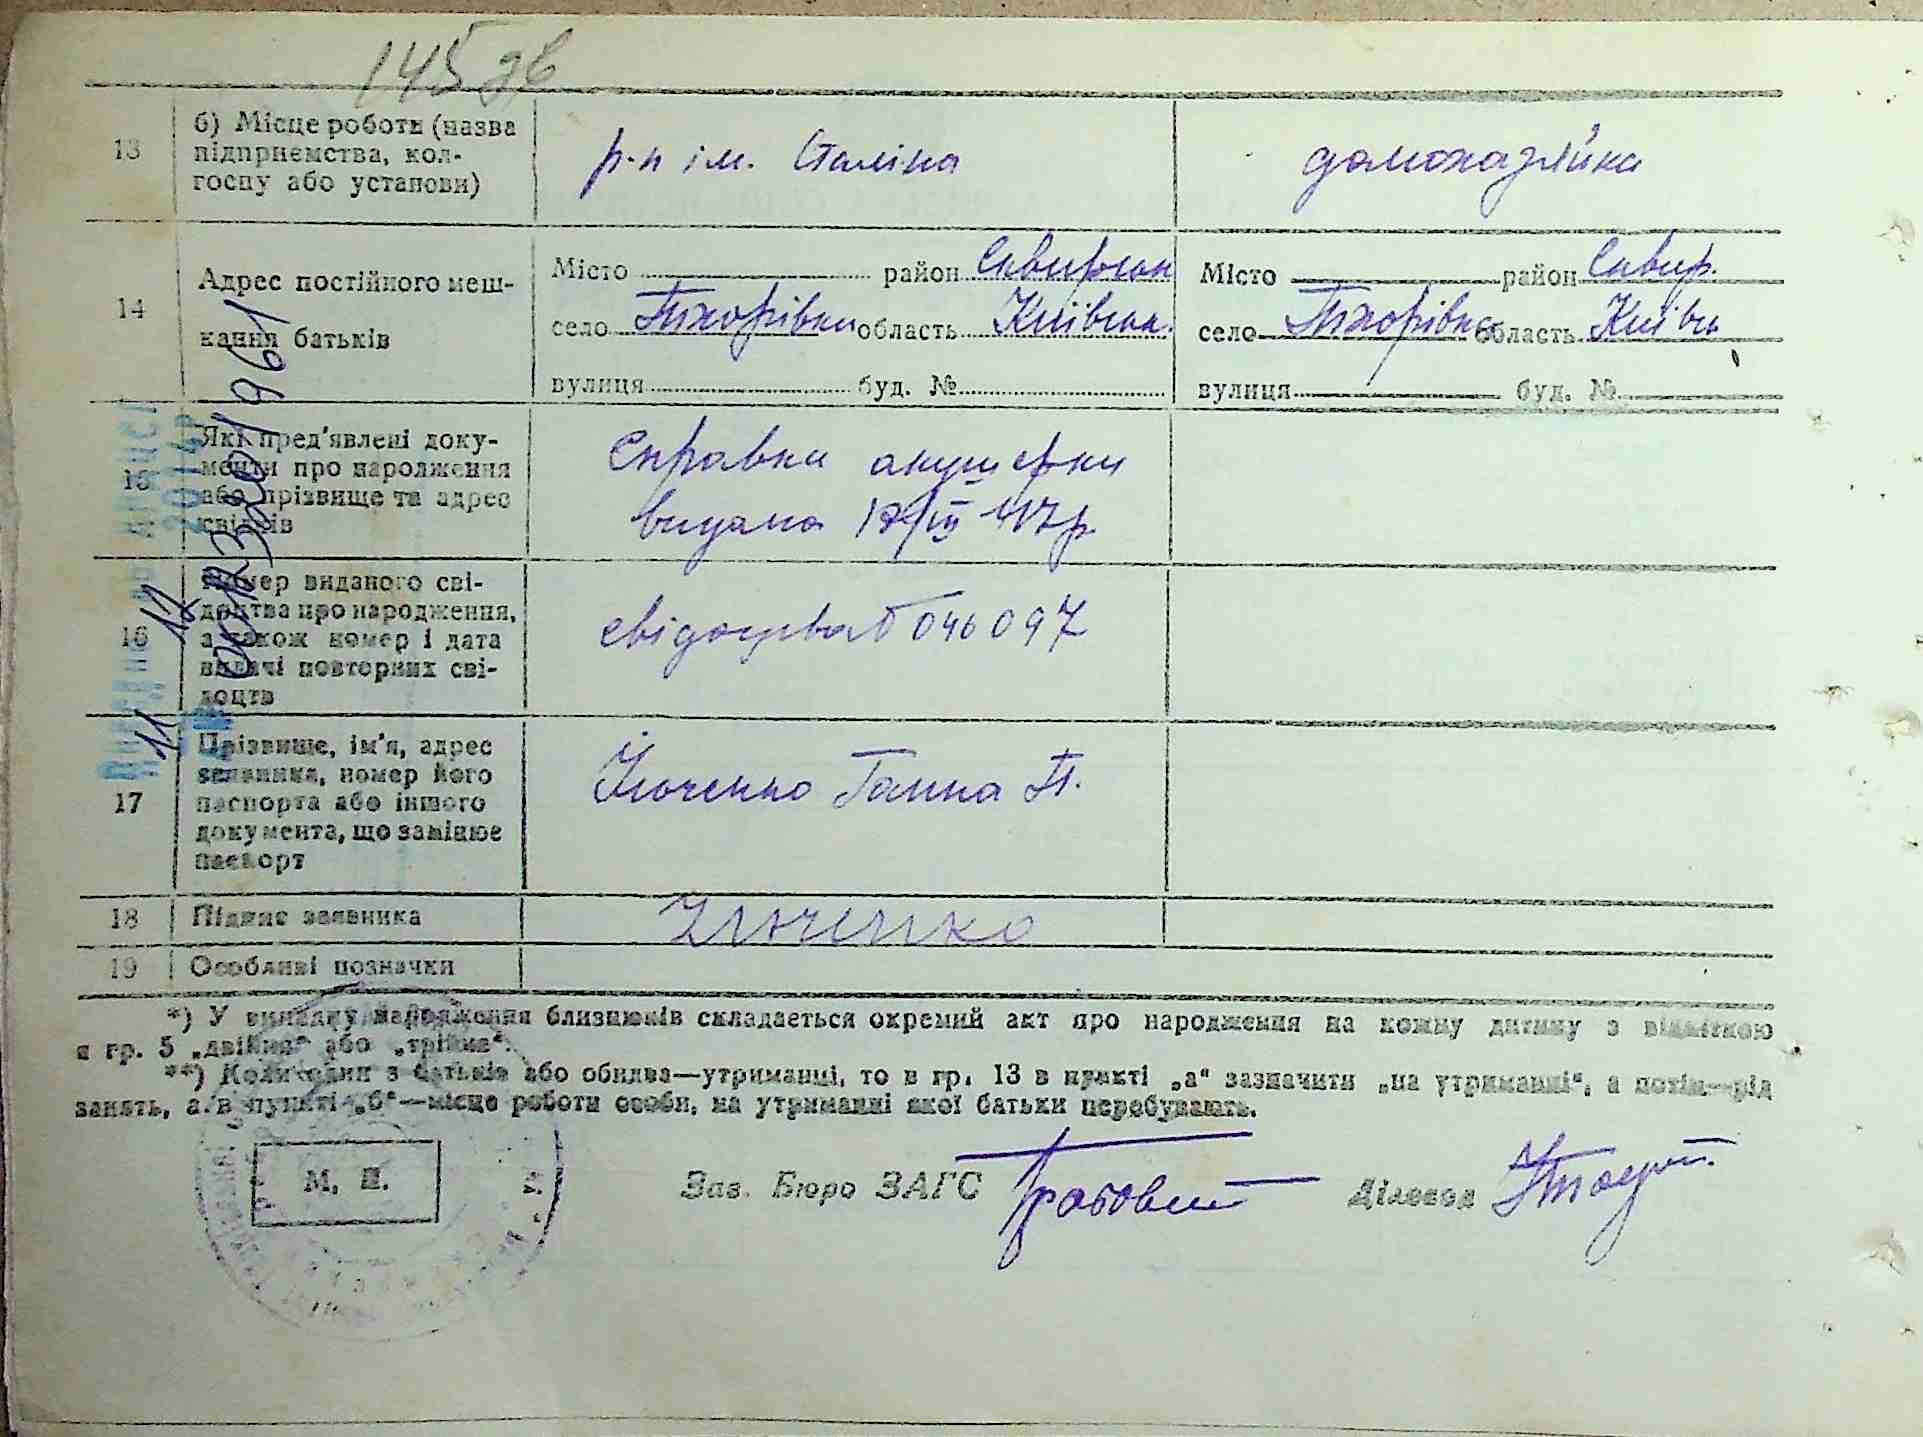 145 зв
13
б) Місце роботи (назва
підприємства, кол-
госпу або установи)
р-п ім. Сталіна
домохазяйка
14
Адрес постійного меш-
кання батьків
Місто район Сквирськ
село Тхорівка область Київськ.
вулиця буд. №
Місто район Сквир.
село Тхорівка область Київсь
вулиця буд. №
15
Які пред'явлені доку-
менти про народження
або прізвище та адрес
свідків
Справка акушерки
видана 12/III 47 р
16
Номер виданого сві-
доцтва про народження,
а також номер і дата
видачі повторних сві-
доцтв
свідоцтва 046097
17
Прізвище, ім'я, адрес
заявника, номер його
паспорта або іншого
документа, що замінює
паспорт
Ганна П.
18
Підпис заявника
19
Особливі позначки
*) У випадку народження близнюків складається окремий акт про народження на кожну дитину з відміткою
в гр. 5 „двійня“ або „трійня“.
**) Коли один з батьків або обидва—утриманці, то в гр. 13 в пункті „а“ зазначити „на утриманні“, а потім—рід
занять, а в пункті „б“—місце роботи особи, на утриманні якої батьки перебувають.
М. П.
Зав. Бюро ЗАГС
Діловод